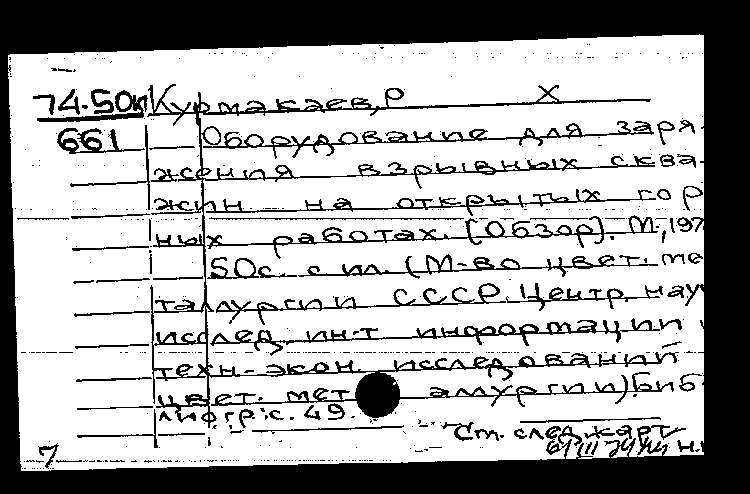 74.50к Курмакаев, Р Х
661 Оборудование для заря-
жения взрывных сква-
жин на открытых гор
ных работах. (Обзор). М., 197
50с. с ил. (М-во цвет. ме
таллургии СССР. Центр. науч
исслед. ин-т информации и
техн-экон. исследований
цвет. мет аллургии) Биб-
лиогр: с. 49.
См. след. карт
7